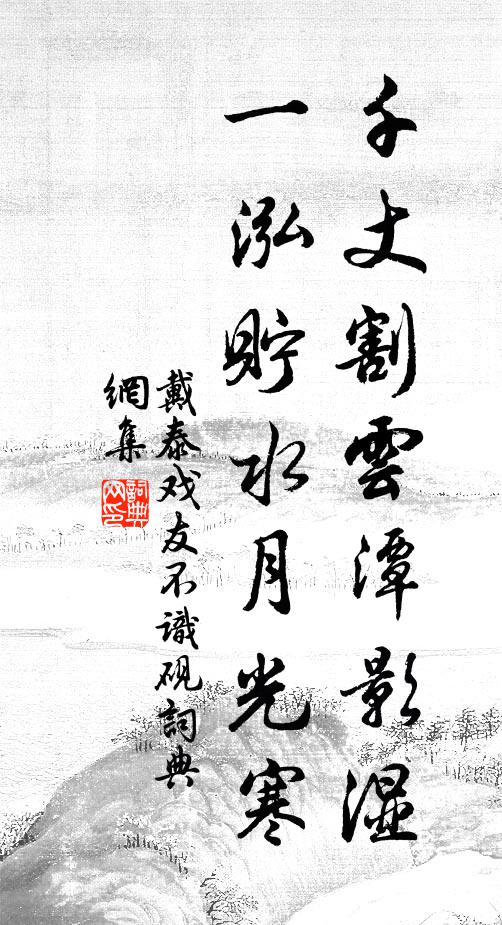 千丈割雲潭影濕
一泓貯水月光寒
戴泰戏友不識硯詞典
網集
詞典
网印